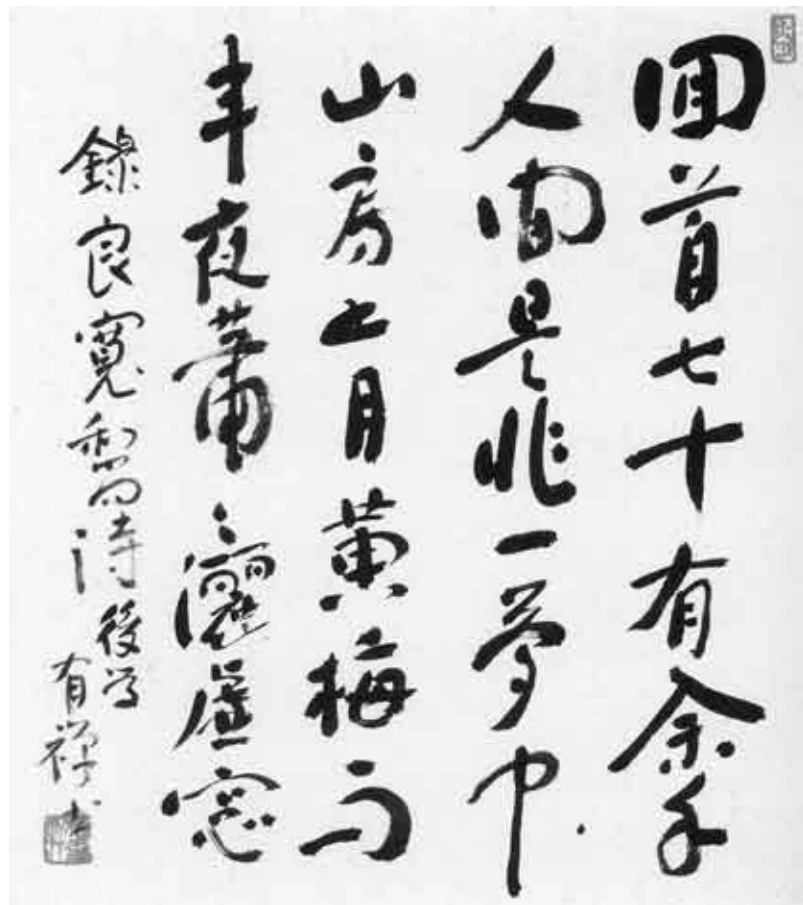 回首七十有余年
人間是非一夢中
山房五月黄梅雨
半夜蕭〻灑虚窓
錄良寛和尚詩
後学
有禅书